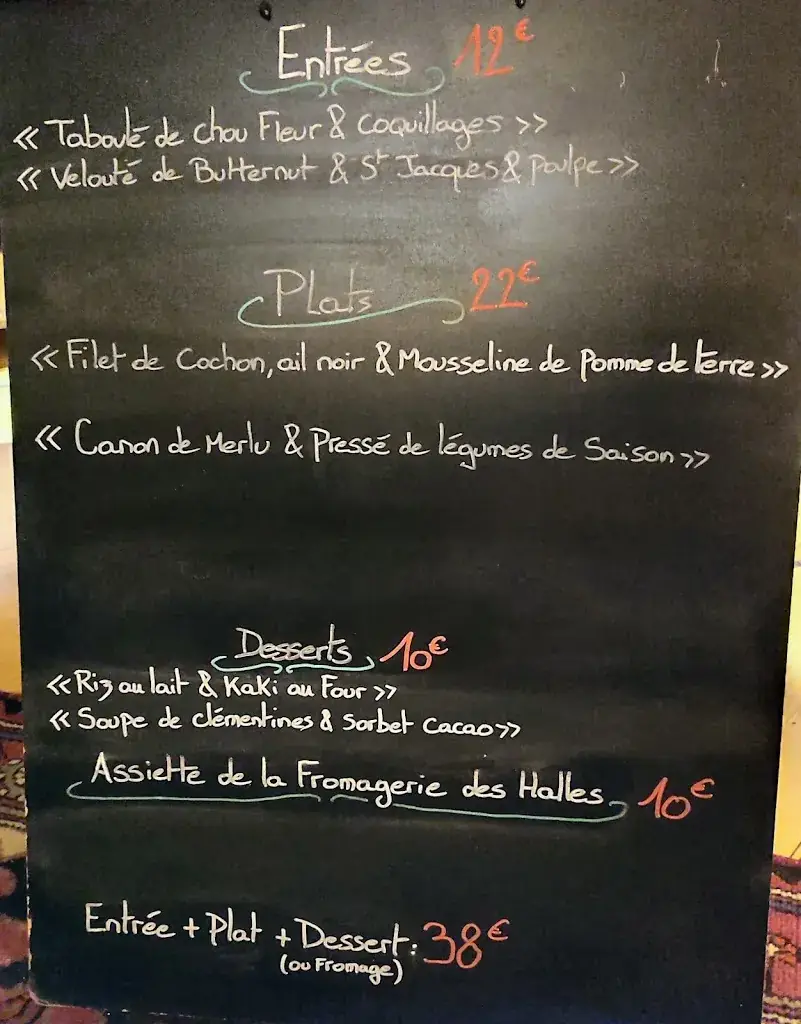 Entrées 12€
« Taboulé de chou Fleur & Coquillages »
« Velouté de Butternut & St Jacques & Poulpe »
Plats 22€
« Filet de Cochon, ail noir & Mousseline de Pomme de terre »
« Canon de Merlu & Pressé de légumes de Saison »
Desserts 10€
« Riz au lait & Kaki au Four »
« Soupe de clémentines & Sorbet Cacao »
Assiette de la Fromagerie des Halles 10€
Entrée + Plat + Dessert : 38€
(ou Fromage)